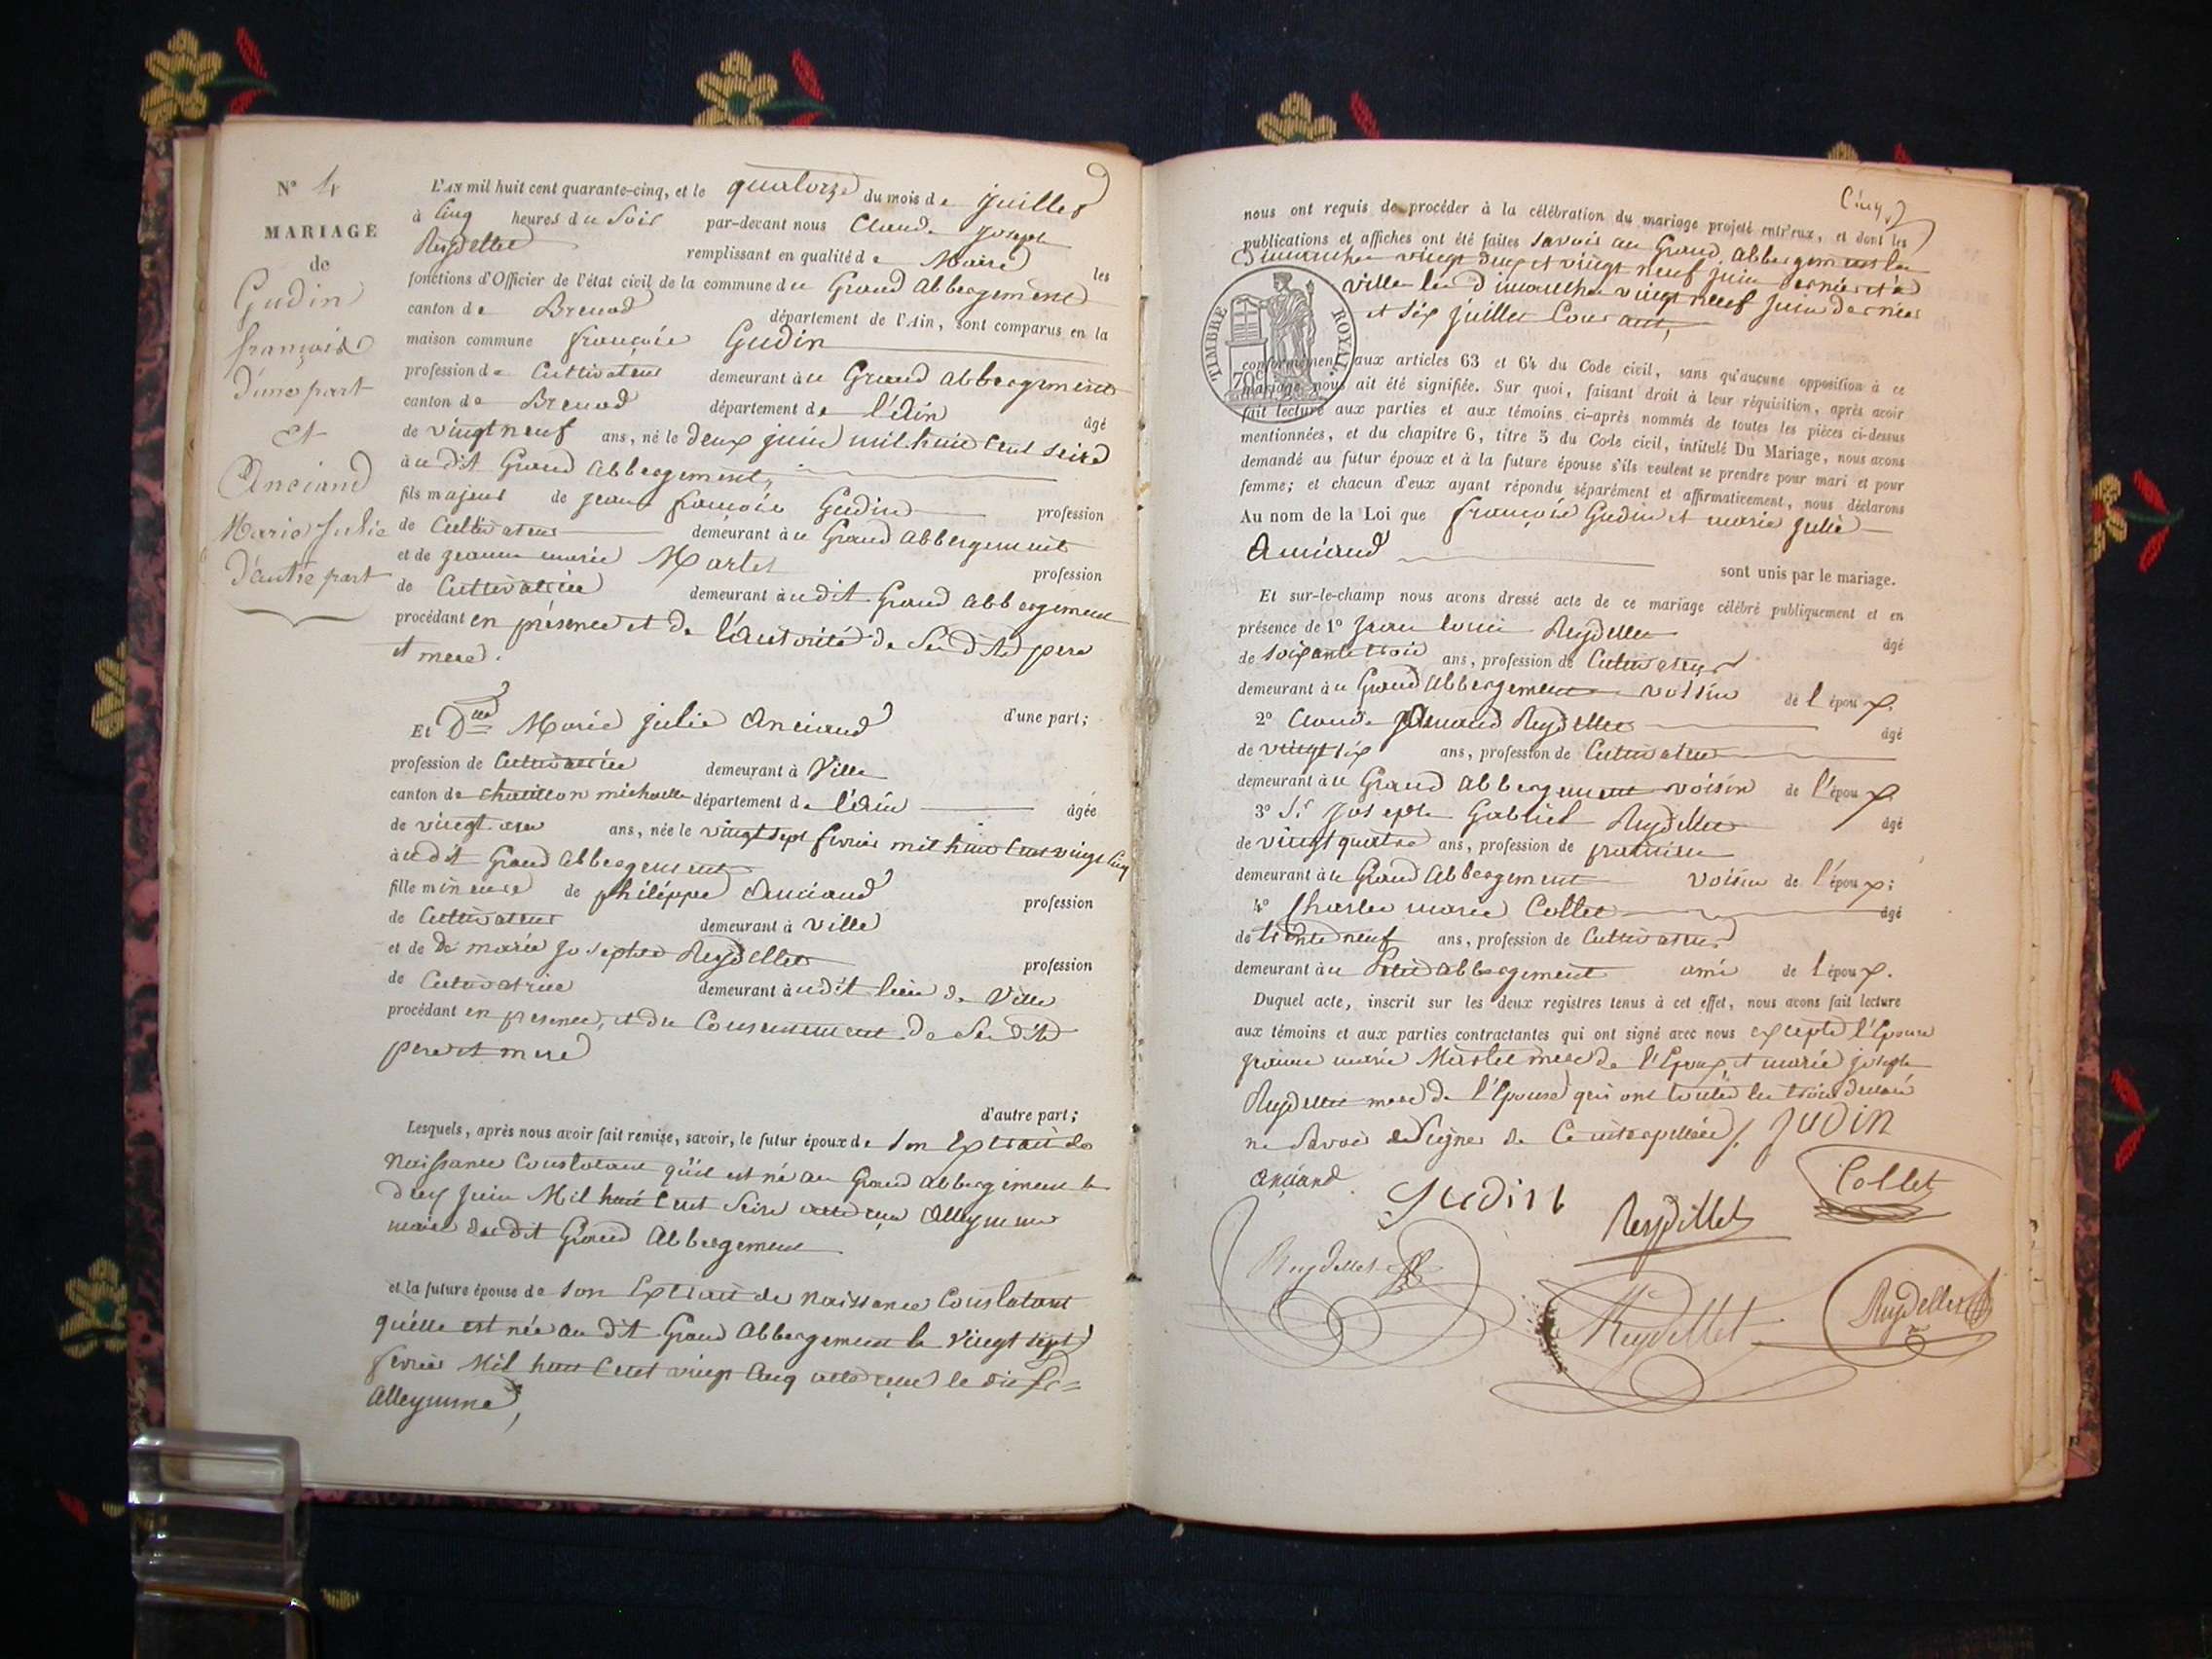 N° 4
MARIAGE
de
Gudin
français
d'une part
Et
Anciand
Marie Julie
D'autre part
L'AN mil huit cent quarante-cinq, et le quatorze du mois de Juillet
à Cinq heures du Soir par-devant nous Claude Joseph
Reydellet remplissant en qualité de Maire les
fonctions d'Officier de l'état civil de la commune du Grand Abbergement
canton de Brenod département de l'Ain, sont comparus en la
maison commune françois Gudin
profession de Cultivateur demeurant à u Grand abbergement
canton de Brenod département de l'Ain âgé
de vingt neuf ans, né le Deux juin mil huit Cent Seize
à u dit Grand Abbergement,
fils majeur de jean françois Gudin profession
de Cultivateur demeurant à u Grand abbergement
et de jeanne marie Martel profession
de Cultivatrice demeurant à u dit Grand abbergement
procédant en présence et de l'autorité de Ses dits pere
et mere.
d'une part;
Et Dlle Marie julie Anciand
profession de Cultivatrice demeurant à Ville
canton de chatillon michaille département de l'Ain âgée
de vingt ans ans, née le vingt sept fevrier mil huit Cent vingt Cinq
à u dit Grand abbergement
fille mineure de philippe Anciand profession
de Cultivateur demeurant à ville
et de De marie josephe Reydellet profession
de Cultivatrice demeurant à u dit lieu de Ville
procédant en presence, et du Consentement de Ses dits
pere et mere
d'autre part;
Lesquels, après nous avoir fait remise, savoir, le futur époux de Son Extrait de
Naissance Constatant qu'il est né au Grand abbergement le
deux juin Mil huit Cent Seize acte reçu Alleymme
maire du dit Grand Abbergement
et la future épouse de Son Extrait de naissance Constatant
quélle est née au dit Grand Abbergement le Vingt sept
fevrier Mil huit Cent vingt Cinq acte reçu le dit Sr
Alleymme,
Cinq
nous ont requis de procéder à la célébration du mariage projeté entr'eux, et dont les
publications et affiches ont été faites Savoir au Grand Abbergement les
Dimanches vingt deux et vingt neuf juin dernier et à
ville les Dimanches vingt neuf juin dernier
et Six juillet Courant,
TIMBRE ROYAL.
70c
conformément aux articles 63 et 64 du Code civil, sans qu'aucune opposition à ce
mariage nous ait été signifiée. Sur quoi, faisant droit à leur réquisition, après avoir
fait lecture aux parties et aux témoins ci-après nommés de toutes les pièces ci-dessus
mentionnées, et du chapitre 6, titre 5 du Code civil, intitulé Du Mariage, nous avons
demandé au futur époux et à la future épouse s'ils veulent se prendre pour mari et pour
femme; et chacun d'eux ayant répondu séparément et affirmativement, nous déclarons
Au nom de la Loi que françois Gudin et marie julie
Anciand
sont unis par le mariage.
Et sur-le-champ nous avons dressé acte de ce mariage célébré publiquement et en
présence de 1° Jean louis Reydellet âgé
de Soixante trois ans, profession de Cultivateur
demeurant à u Grand Abbergement voisin de l'époux.
2° Claude Armand Reydellet âgé
de vingt six ans, profession de Cultivateur
demeurant à u Grand abbergement voisin de l'époux
3° Sr joseph Gabriel Reydellet âgé
de vingt quatre ans, profession de praticien
demeurant à u Grand Abbergement Voisin de l'époux;
4° Charles marie Collet âgé
de trente neuf ans, profession de Cultivateur
demeurant à u Petit abbergement ami de l'époux.
Duquel acte, inscrit sur les deux registres tenus à cet effet, nous avons fait lecture
aux témoins et aux parties contractantes qui ont signé avec nous excepté l'Epouse
jeanne marie Martel mere de l'Epoux, et marie joseph
Reydellet mere de l'Epouse qui ont toutes les trois declaré
ne Savoir Signer de Ce interpellées /. JUDIN
anciand
Judin
Collet
Reydillet
Reydellet
Reydellet
Reydellet